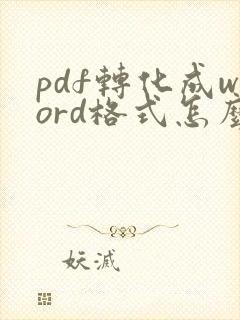 pdf轉化成w
ord格式怎麼
妖滅